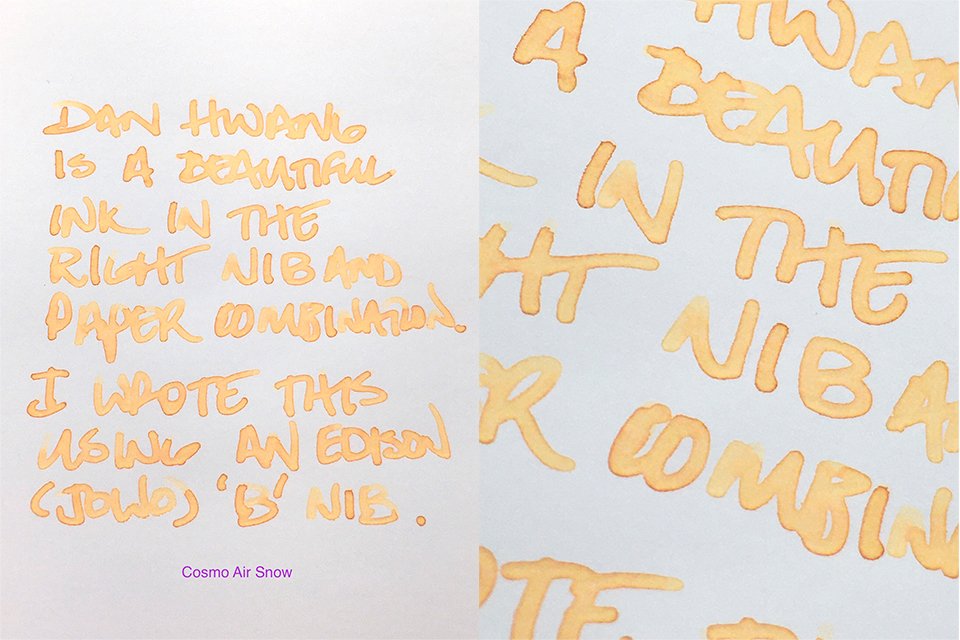 DAN HWANG
IS A BEAUTIFUL
INK IN THE
RIGHT NIB AND
PAPER COMBINATION.
I WROTE THIS
USING AN EDISON
(JOWO) 'B' NIB.
Cosmo Air Snow
A HWAN
BEAUTI
IN THE
HT NIB A
ER COMBIN
OTE